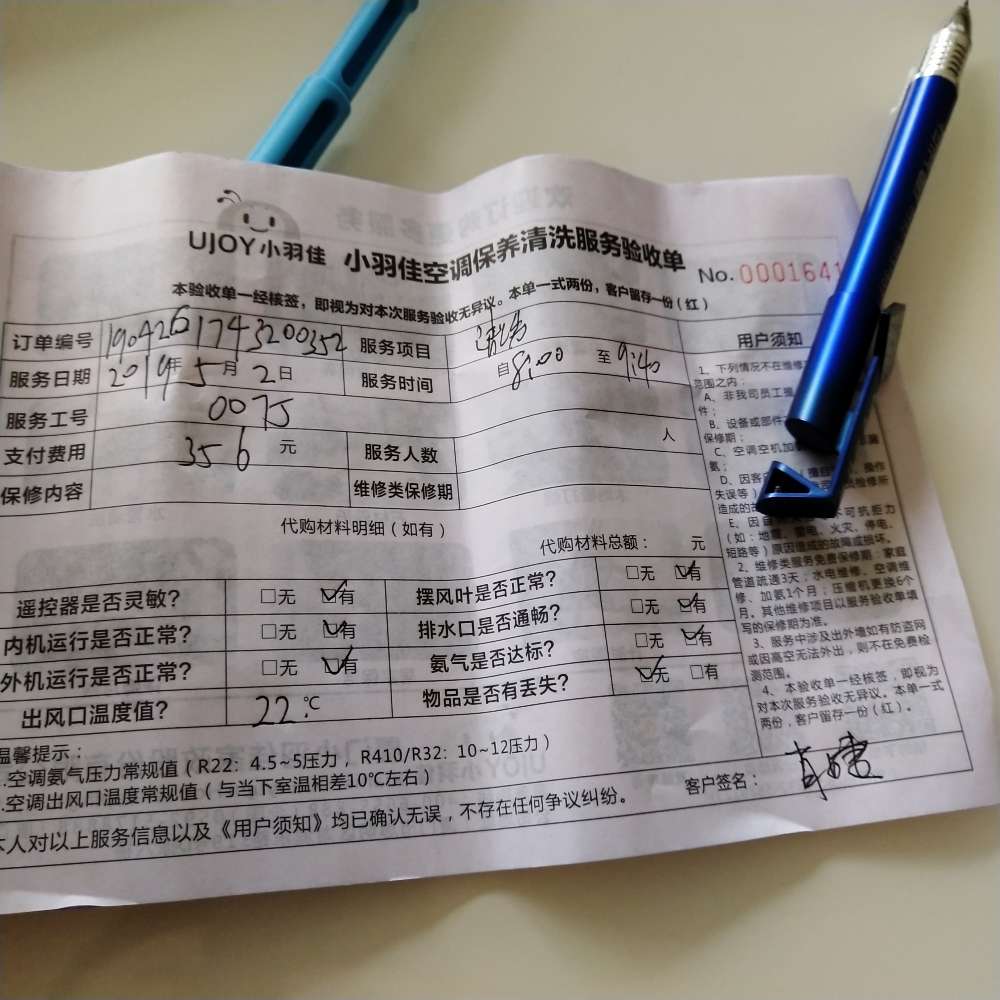 UJOY小羽佳 小羽佳空调保养清洗服务验收单 No.0001641
本验收单一经核签，即视为对本次服务验收无异议。本单一式两份，客户留存一份（红）
订单编号 1904261743200352 服务项目 清洗
服务日期 2019年5月2日 服务时间 自8:00至9:40
服务工号 0075
支付费用 356元 服务人数 人
保修内容 维修类保修期
代购材料明细（如有）
代购材料总额： 元
遥控器是否灵敏？ □无 ☑有 摆风叶是否正常？ □无 ☑有
内机运行是否正常？ □无 ☑有 排水口是否通畅？ □无 ☑有
外机运行是否正常？ □无 ☑有 氨气是否达标？ □无 ☑有
出风口温度值？ 22℃ 物品是否有丢失？ ☑无 □有
温馨提示：
.空调氨气压力常规值（R22：4.5~5压力，R410/R32：10~12压力）
.空调出风口温度常规值（与当下室温相差10℃左右）
本人对以上服务信息以及《用户须知》均已确认无误，不存在任何争议纠纷。
客户签名：
用户须知
1、下列情况不在维修
范围之内：
A、非我司员工
件；
B、设备或部件
保修期；
C、空调空机加
氨；
D、因客 操作
失误等）
造成的故
E、因自 可抗拒力
（如：地震、雷电、火灾、停电、
短路等）原因造成的故障或损坏。
2、维修类服务免费保修期：家庭
管道疏通3天；水电维修、空调维
修、加氨1个月；压缩机更换6个
月。其他维修项目以服务验收单填
写的保修期为准。
3、服务中涉及出外墙如有防盗网
或因高空无法外出，则不在免费检
测范围。
4、本验收单一经核签，即视为
对本次服务验收无异议。本单一式
两份，客户留存一份（红）。